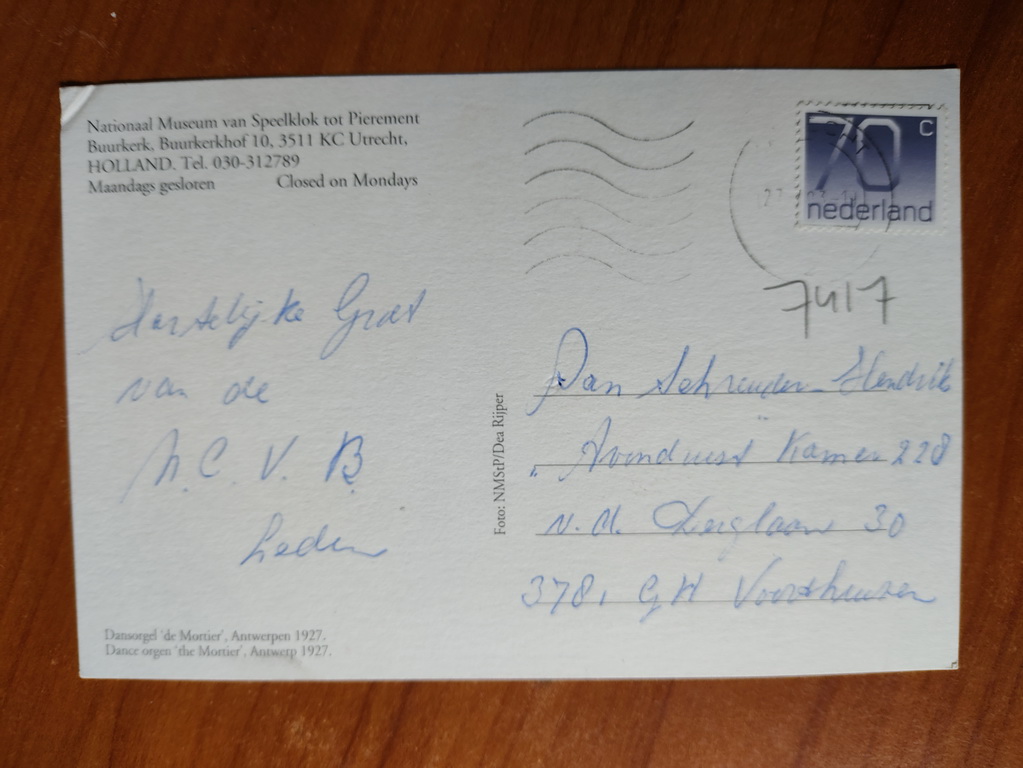 Nationaal Museum van Speelklok tot Pierement
Buurkerk, Buurkerkhof 10, 3511 KC Utrecht,
HOLLAND. Tel. 030-312789
Maandags gesloten Closed on Mondays
70 c
nederland
7417
Hartelijke Groet
van de
N.C.V.B.
Leden
Schreuder-Hendrik
"Avondrust" Kamer 228
v.d. 30
3781 GH Voorthuizen
Foto: NMStP/Dea Rijper
Dansorgel 'de Mortier', Antwerpen 1927.
Dance orgen 'the Mortier', Antwerp 1927.